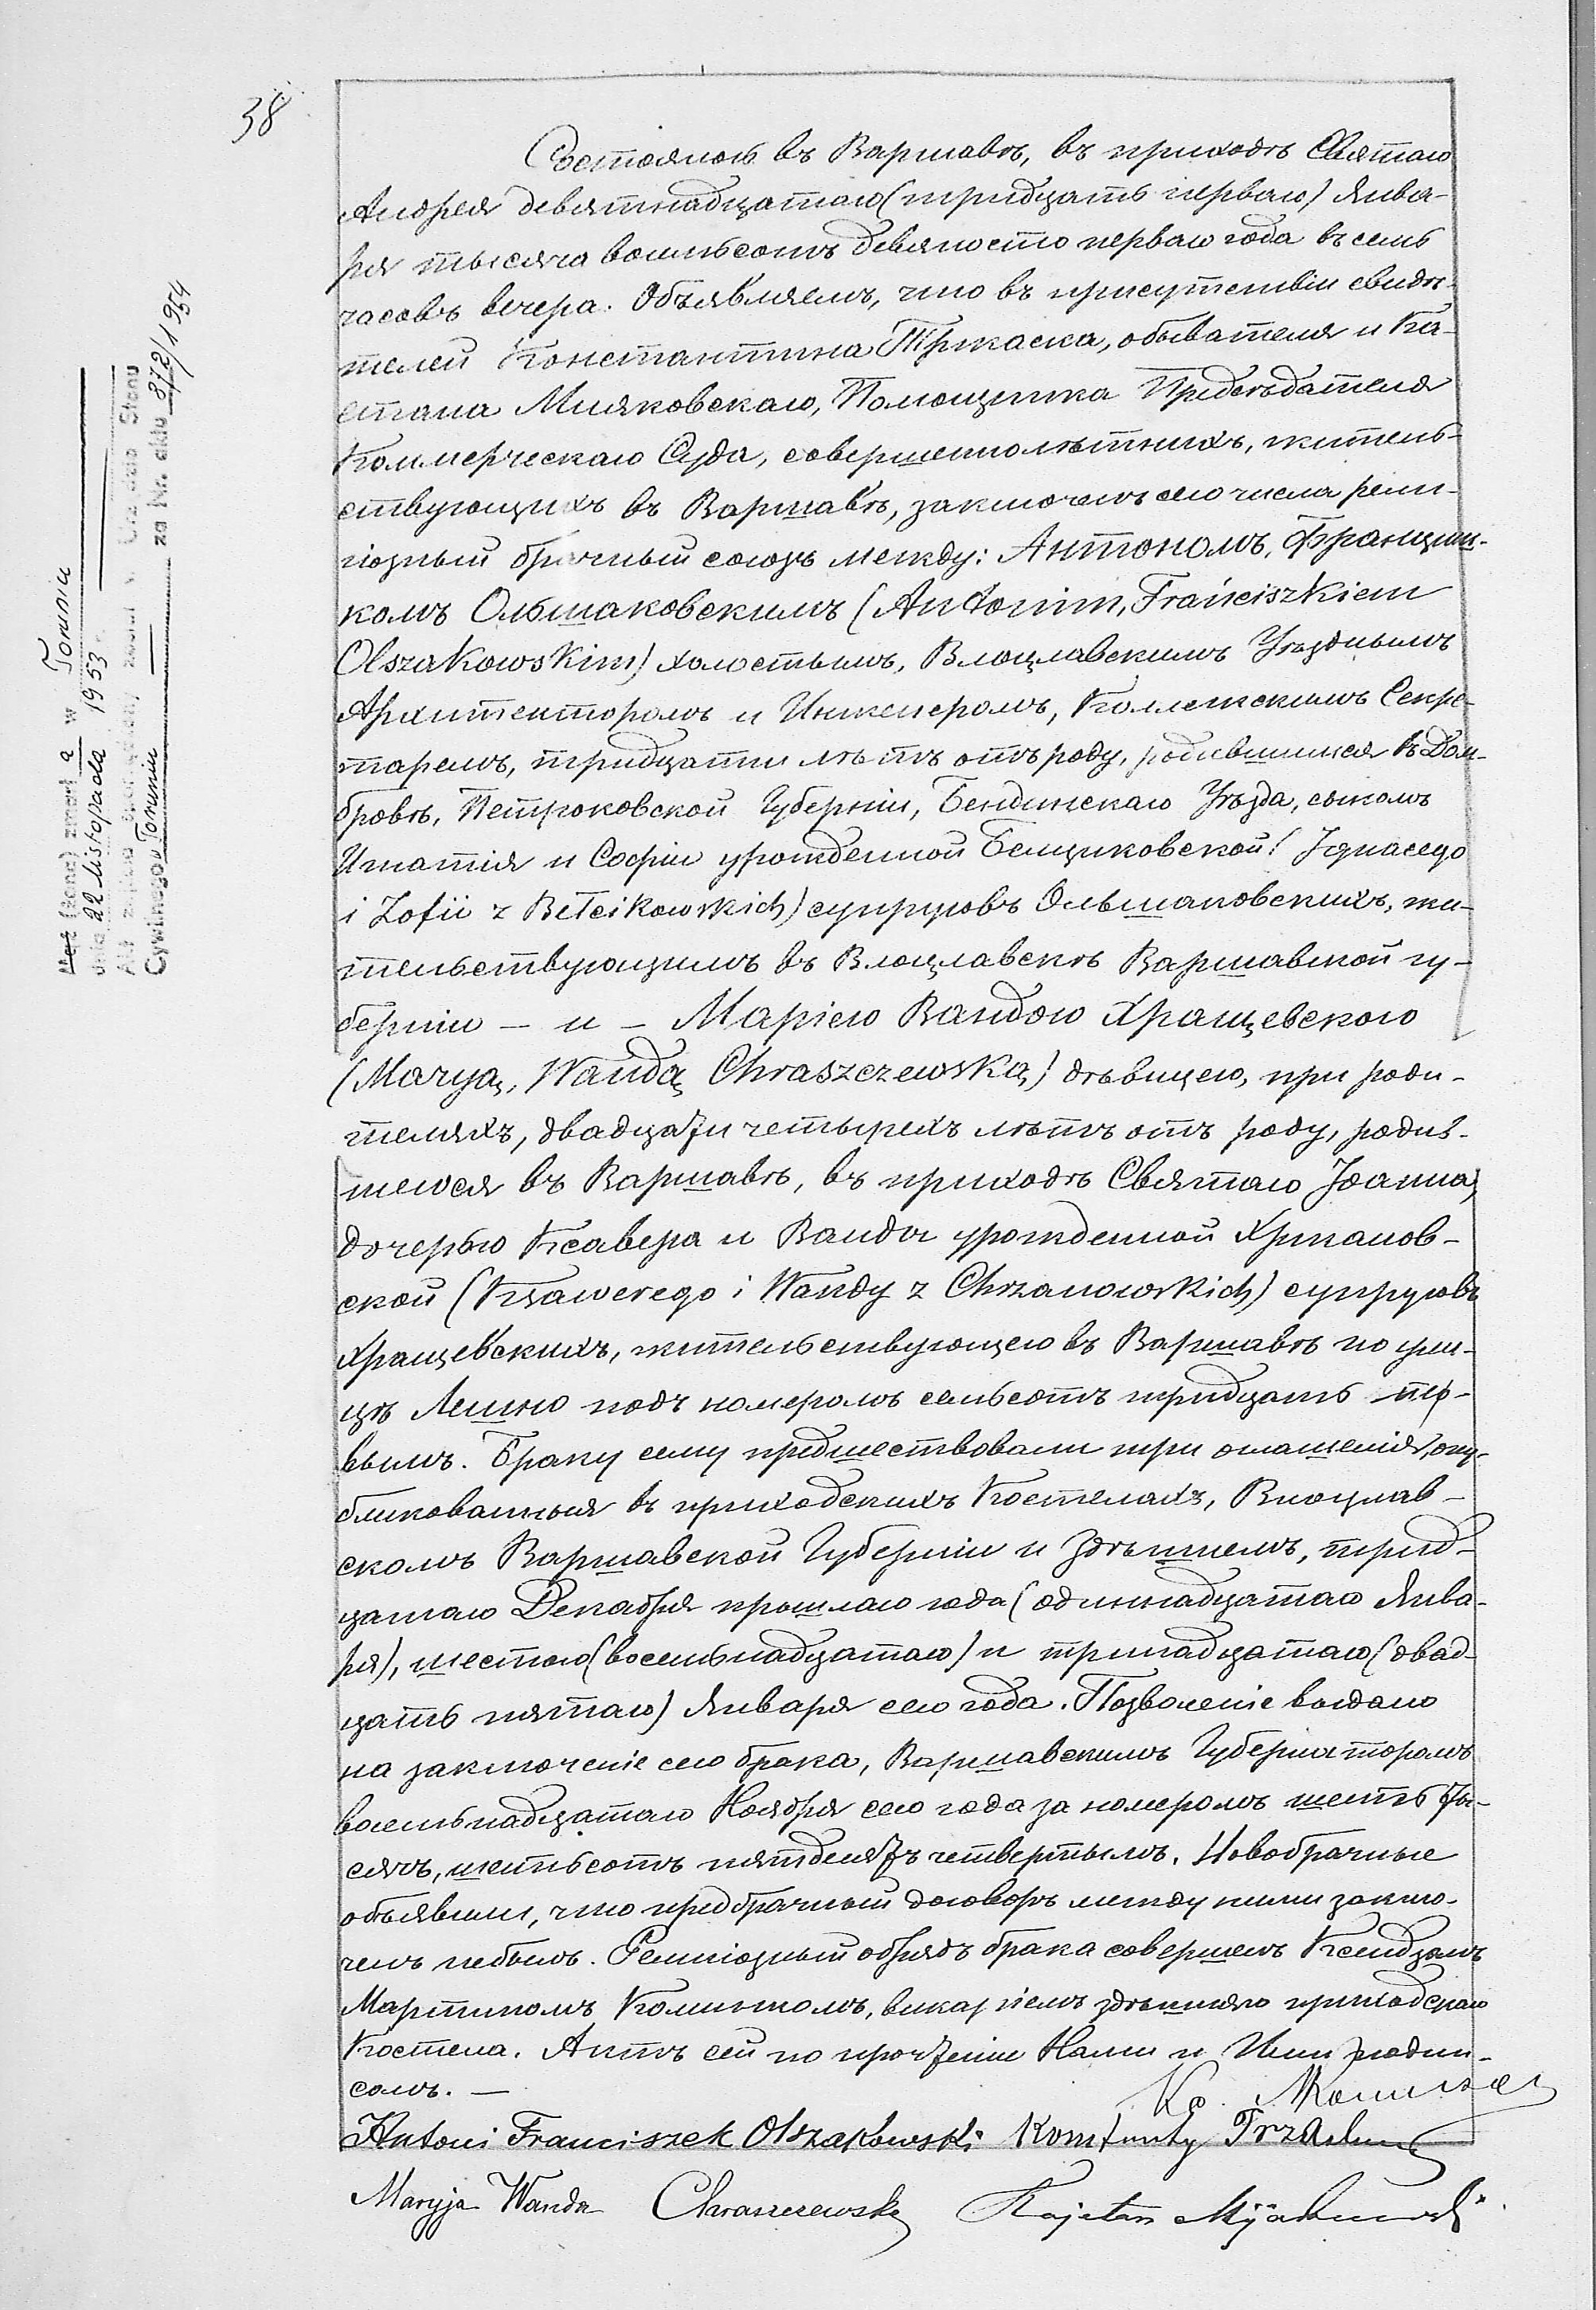 38
Состоялось въ Варшавѣ, въ приходѣ Святаго
Андрея девятнадцатаго (тридцать перваго) Янва-
ря тысяча восемьсотъ девяносто перваго года въ семь
часовъ вечера. Объявляемъ, что въ присутствіи свидѣ-
телей Константина Тржаска, обывателя и Ка-
етана Мияковскаго, Помощника Предсѣдателя
Коммерческаго Суда, совершеннолѣтнихъ, житель-
ствующихъ въ Варшавѣ, заключенъ сего числа рели-
гіозный брачный союзъ между: Антономъ, Франциш-
комъ Ольшаковскимъ (Antonim, Franciszkiem
Olszakowskim) холостымъ, Влоцлавскимъ Уѣзднымъ
Архитекторомъ и Инженеромъ, Коллежскимъ Секре-
таремъ, тридцати лѣтъ отъ роду, родившимся въ Дом-
бровѣ, Петроковской Губерніи, Бендинскаго Уѣзда, сыномъ
Игнатія и Софіи урожденной Белциковской (Ignacego
i Zofii z Bełcikowskich) супруговъ Ольшаковскихъ, жи-
тельствующимъ въ Влоцлавскѣ Варшавской гу-
берніи — и — Маріею Вандою Хращевскою
(Maryą, Wandą Chraszczewską) дѣвицею, при роди-
теляхъ, двадцати четырехъ лѣтъ отъ роду, родив-
шеюся въ Варшавѣ, въ приходѣ Святаго Іоанна,
дочерью Ксавера и Ванды урожденной Хржанов-
ской (Ksawerego i Wandy z Chrzanowskich) супруговъ
Хращевскихъ, жительствующею въ Варшавѣ по ули-
цѣ Лешно подъ номеромъ семьсотъ тридцать пер-
вымъ. Браку сему предшествовали три оглашенія, опу-
бликованныя въ приходскихъ Костелахъ, Влоцлав-
скомъ Варшавской Губерніи и здѣшнемъ, трид-
цатаго Декабря прошлаго года (одиннадцатаго Янва-
ря), шестаго (восемьнадцатаго) и тринадцатаго (двад-
цать пятаго) Января сего года. Позволеніе выдано
на заключеніе сего брака, Варшавскимъ Губернаторомъ
восемьнадцатаго Ноября сего года за номеромъ шесть ты-
сячъ, шестьсотъ пятдесятъ четвертымъ. Новобрачные
объявили, что предбрачный договоръ между ними заклю-
ченъ небылъ. Религіозный обрядъ брака совершенъ Ксендзомъ
Мартиномъ, викаріемъ здѣшняго приходскаго
Костела. Актъ сей по прочтеніи Нами и Ими подпи-
санъ. —
Antoni Franciszek Olszakowski Konstanty
Maryja Wanda Chraszczewska Kajetan
Mąż (żona) zmarł a w Toruniu
dnia 22 listopada 1953
Cywilnego w Toruniu za Nr. aktu 872/1954